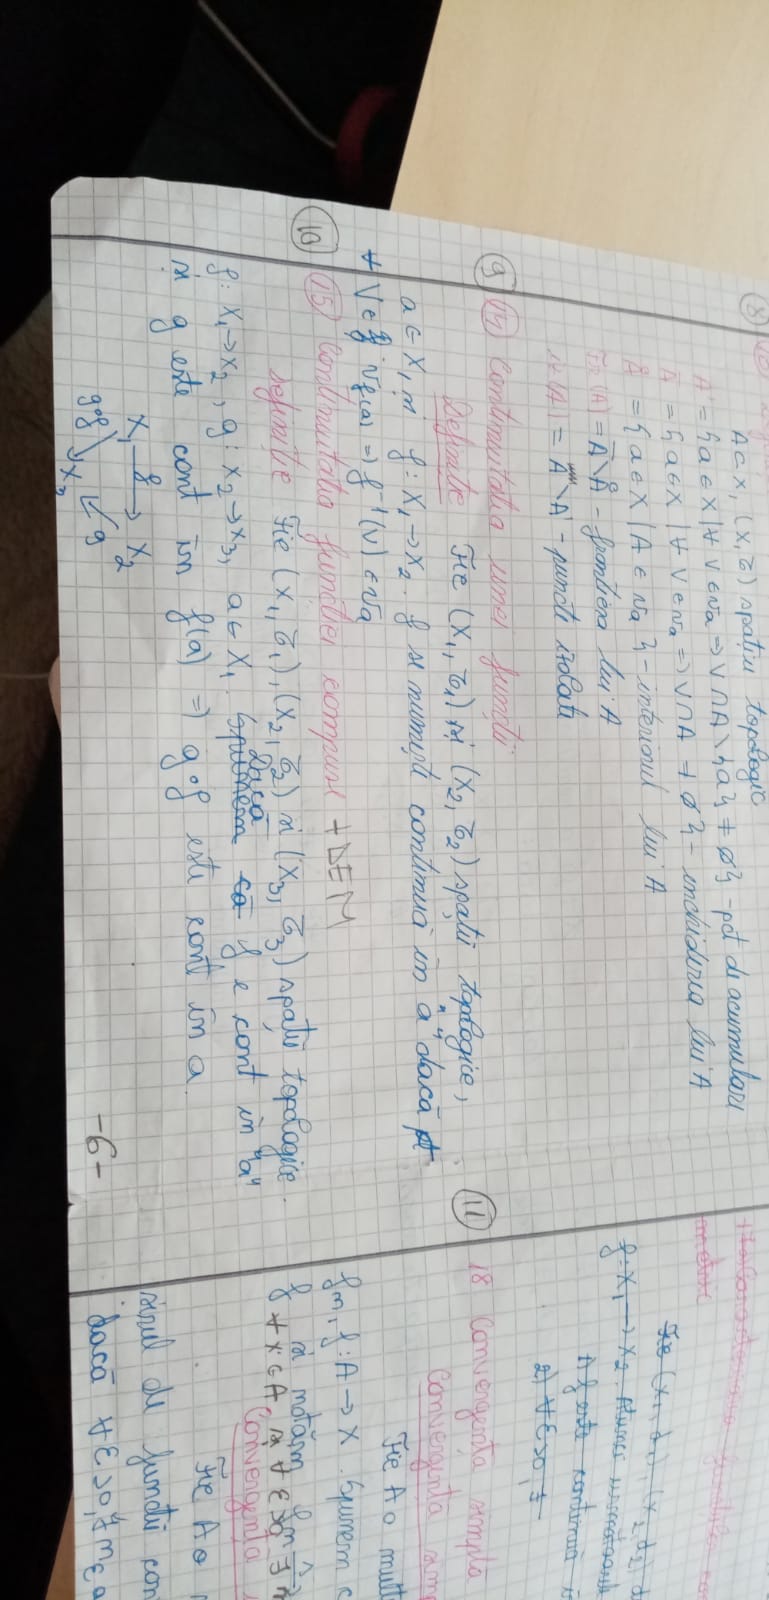 8
A ⊂ X, (X, τ) spațiu topologic
A' = {a ∈ X | ∀ V ∈ Va => V ∩ A \ {a} ≠ ∅} - pct de acumulare
A̅ = {a ∈ X | ∀ V ∈ Va => V ∩ A ≠ ∅} - inchiderea lui A
Å = {a ∈ X | A ∈ Va } - interiorul lui A
Fr (A) = A̅ \ Å - frontiera lui A
(A) = A \ A' - puncte izolate
9 14 Continuitatea unei funcții
Definiție Fie (X1, τ1) și (X2, τ2) spații topologice,
a ∈ X, și f: X1 → X2. f se numește continuă in "a" dacă
∀ V ∈ Vf(a) => f⁻¹(V) ∈ Va
10 15 Continuitatea funcției compuse + DEM
Definiție Fie (X1, τ1), (X2, τ2) și (X3, τ3) spații topologice.
f: X1 → X2, g: X2 → X3, a ∈ X1. Spunem că Dacă f e cont in "a"
și g este cont în f(a) => g∘f este cont în a.
X1 f → X2
g∘f g
X3
-6-
metric
Fie (X1, d1), (X2, d2)
f: X1 → X2. Atunci
1) f este continuă
2) ∀ ε > 0,
11 18 Convergența simplă
Convergență
Fie A o
fn, f: A → X. Spunem
f și notăm fn
∀ x ∈ A, și ∀ ε > 0 ∃
Convergența
Fie A o
șirul de funcții
dacă ∀ ε > 0, ∃ nε